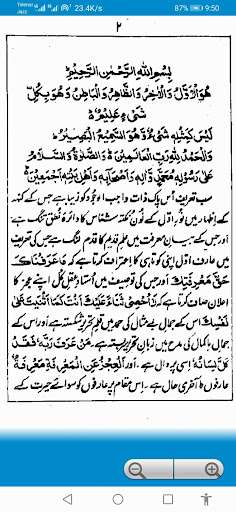 Telenor
Jazz
23.4K/s
87%
9:50
۲
بِسْمِ اللهِ الرَّحْمٰنِ الرَّحِيْمِ
هُوَ الْاَوَّلُ وَالْاٰخِرُ وَالظَّاهِرُ وَالْبَاطِنُ وَهُوَ بِكُلِّ
شَیْءٍ عَلِيْمٌ
لَيْسَ كَمِثْلِهٖ شَیْءٌ وَهُوَ السَّمِيْعُ الْبَصِيْرُ
وَالْحَمْدُ لِلّٰهِ رَبِّ الْعَالَمِيْنَ وَالصَّلٰوةُ وَالسَّلَامُ
عَلٰی رَسُوْلِهٖ مُحَمَّدٍ وَّاٰلِهٖ وَاَصْحَابِهٖ وَاَهْلِ بَيْتِهٖ اَجْمَعِيْنَ
سب تعریف اُس پاک ذات واجب الوجود کو زیبا ہے جس کے کنہ
کے اظہار میں نورِ اوّل کے فنونِ نکتہ شناس کا دائرۂ نطق تنگ ہے
اور جس کے بیانِ معرفت میں علمِ قدیم کا قدم لنگ ہے جس کی تعریف
میں عارفِ اوّل اپنی کوتاہی کا اعتراف کرتا ہے کہ مَا عَرَفْنَاكَ
حَقَّ مَعْرِفَتِكَ اور جس کی توصیف میں اُستادِ عقلِ کُل اپنے عجز کا
اعلان صاف کرتا ہے کہ لَا اُحْصِیْ ثَنَاءً عَلَيْكَ اَنْتَ كَمَا اَثْنَيْتَ عَلٰی
نَفْسِكَ اس کے جمالِ بے مثال کی حمد میں قلمِ تحریر شکستہ ہے اور اس کے
جلال باکمال کی مدح میں زبانِ تقریر بستہ ہے۔ مَنْ عَرَفَ رَبَّهٗ فَقَدْ
كَلَّ لِسَانُهٗ اِسی پر دال ہے۔ اور اَلْعَجْزُ عَنِ الْمَعْرِفَةِ مَعْرِفَةٌ
عارفوں کا آخری حال ہے۔ اِس مقام پر عارفوں کو سوائے حیرت کے